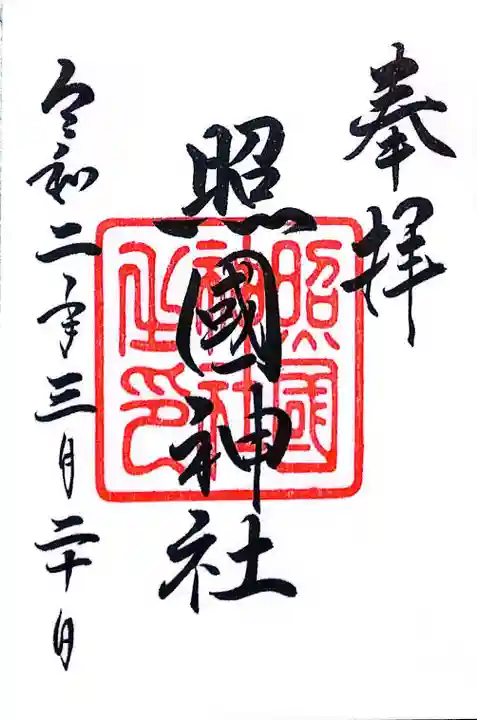 奉拝
照國神社
照国
神社
之印
令和二年三月二十日